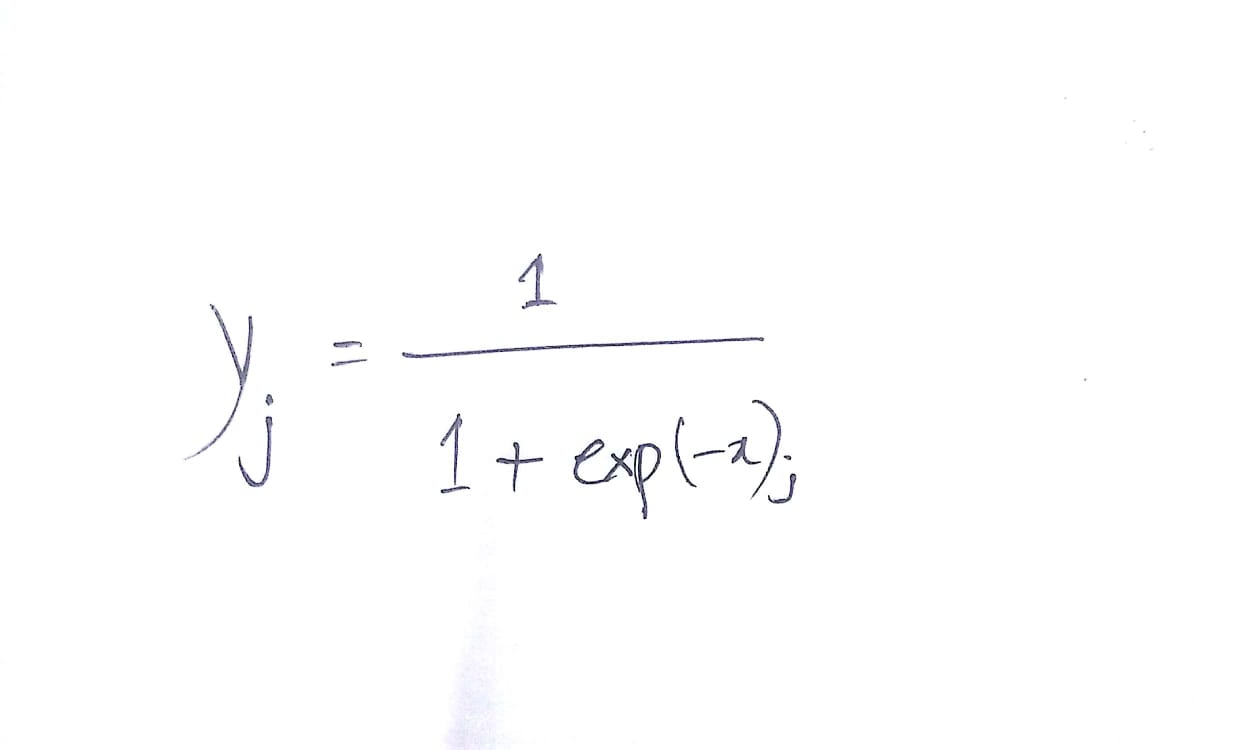 y_j = 1 / (1 + exp(-x)_j)